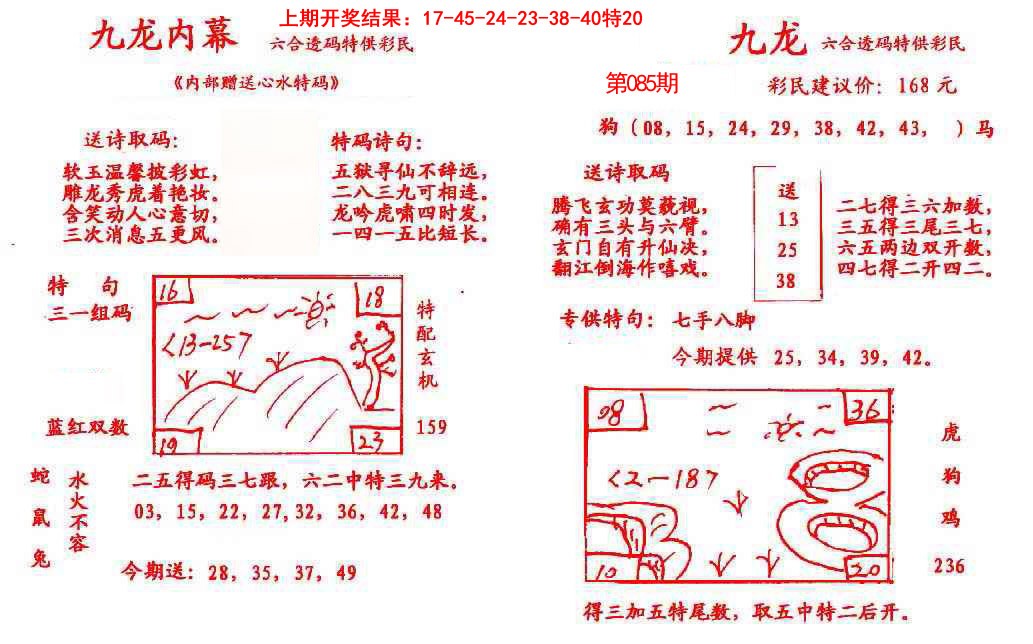 上期开奖结果：17-45-24-23-38-40特20
九龙内幕 六合透码特供彩民
《内部赠送心水特码》
送诗取码：
软玉温馨披彩虹，
雕龙秀虎着艳妆。
含笑动人心意切，
三次消息五更风。
特码诗句：
五狱寻仙不辞远，
二八三九可相连。
龙吟虎啸四时发，
一四一五比短长。
特 句
三一组码
16
18
<13-257
19
23
特配玄机
159
蓝红双数
蛇鼠兔
水火不容
二五得码三七跟，六二中特三九来。
03，15，22，27,32，36，42，48
今期送：28，35，37，49
九龙 六合透码特供彩民
第085期 彩民建议价：168 元
狗（08，15，24，29，38，42，43， ）马
送诗取码
腾飞玄功莫藐视，
确有三头与六臂。
玄门自有升仙决，
翻江倒海作嘻戏。
送
13
25
38
二七得三六加数，
三五得三尾三七，
六五两边双开数，
四七得二开四二。
专供特句：七手八脚
今期提供 25，34，39，42。
08
36
<2-187
10
20
虎
狗
鸡
236
得三加五特尾数，取五中特二后开。